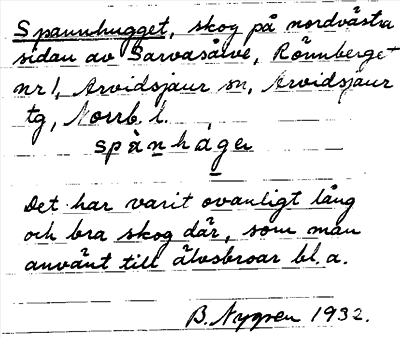 Spannhugget, skog på nordvästra
sidan av Sarvasälve, Rönnberget
nr 1, Arvidsjaur sn, Arvidsjaur
tg, Norrb. l.
spànhágen
Det har varit ovanligt lång
och bra skog där, som man
använt till älvsbroar bl. a.
B. Nygren 1932.